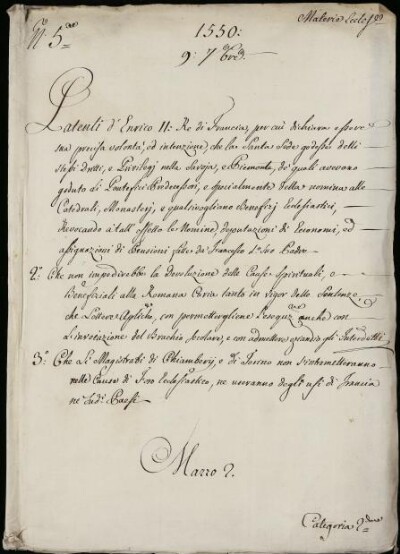 Materie Eccles.
N. 5.
1550:
9. 7bre.
Patenti d'Enrico II: Re di Francia, per cui dichiara essere
sua precisa volontà, ed intenzione, che la Santa Sede godesse delli
stessi Dritti, e Privilegj nella Savoja, e Piemonte, de' quali avevano
goduto li Pontefici Predecessori, e specialmente della nomina alle
Catedrali, Monasterj, e qualsivogliano Beneficj Ecclesiastici,
Revocando a tall' effetto le Nomine, deputazioni di Economi, ed
assignazioni di Pensioni fatte da Francesco I. suo Padre
2.° Che non impedirebbe la Devoluzione delle Cause Spirituali, e
Beneficiali alla Romana Curia tanto in vigor delle Sentenze,
che Lettere Apliche, con permetterglione l'esequz. anche con
l'invocazione del Braccio Secolare, e con admettere eziandio gli Interdetti
3.° Che li Magistrati di Chiamberj, e di Torino non s'intrometteranno
nelle Cause di Foro Ecclesiastico, ne useranno degli usi di Francia
ne' sudi. Paesi.
Mazzo 2.
Categoria 2.